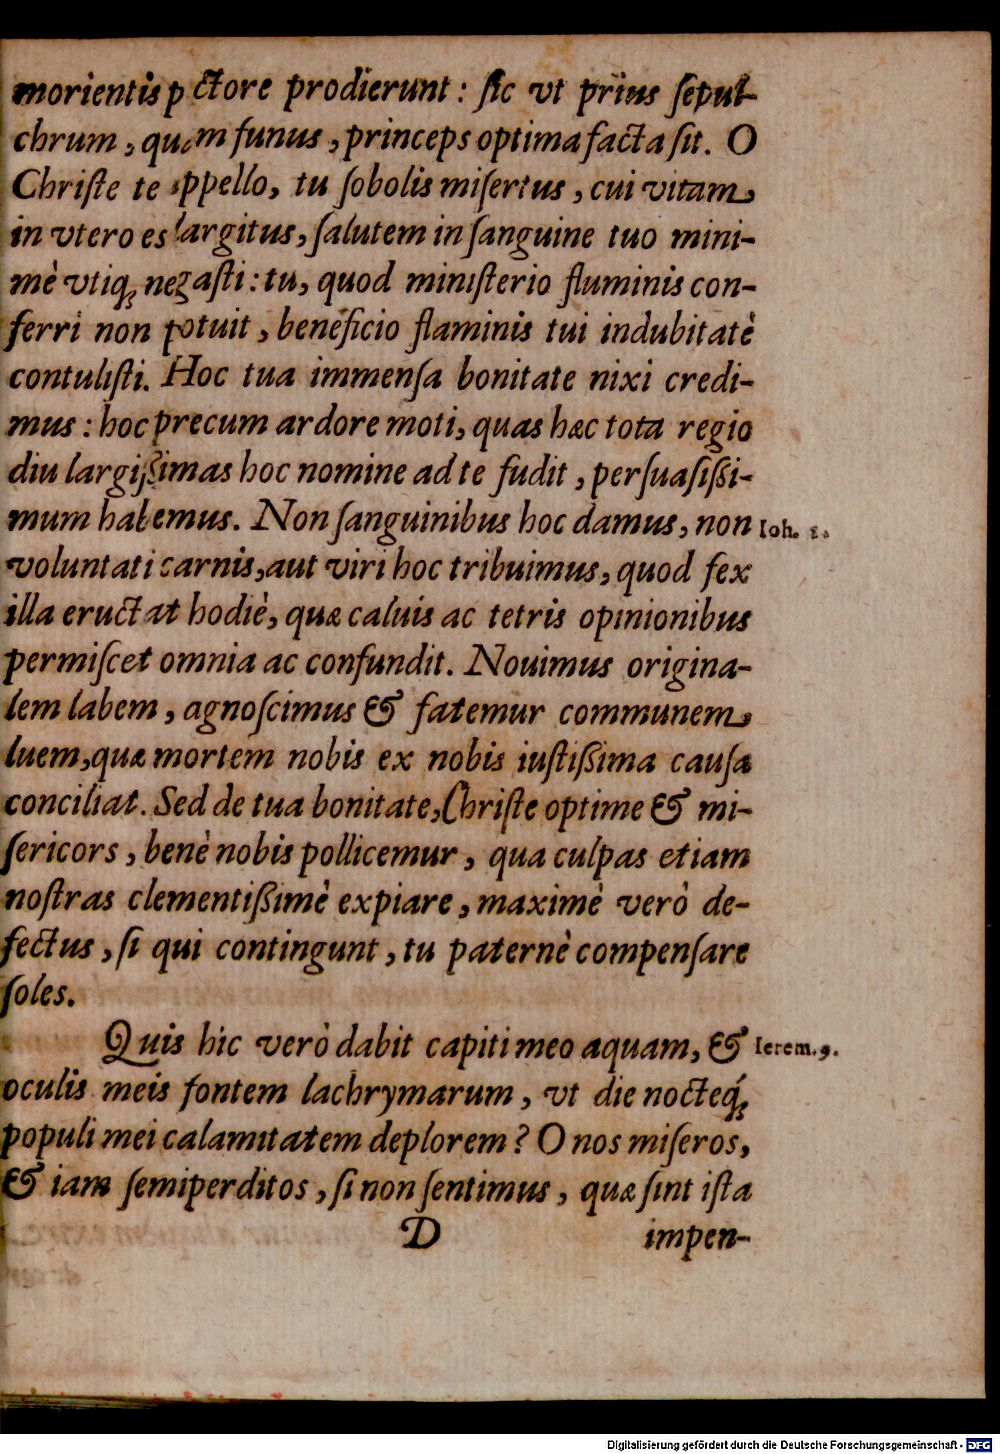 morientis pectore prodierunt: ſic vt priùs ſepul-
chrum, quàm funus, princeps optima facta ſit. O
Chriſte te appello, tu ſobolis miſertus, cui vitam,
in vtero es largitus, ſalutem in ſanguine tuo mini-
mè vtiq́; negaſti: tu, quod miniſterio fluminis con-
ferri non potuit, beneficio flaminis tui indubitatè
contuliſti. Hoc tua immenſa bonitate nixi credi-
mus: hoc precum ardore moti, quas hæc tota regio
diu largiſſimas hoc nomine ad te fudit, perſuaſiſſi-
mum habemus. Non ſanguinibus hoc damus, non
Ioh. 1.
voluntati carnis, aut viri hoc tribuimus, quod fex
illa eructat hodiè, quæ caluis ac tetris opinionibus
permiſcet omnia ac confundit. Nouimus origina-
lem labem, agnoſcimus & fatemur communem,
luem, quæ mortem nobis ex nobis iuſtiſſima cauſa
conciliat. Sed de tua bonitate, Chriſte optime & mi-
ſericors, benè nobis pollicemur, qua culpas etiam
noſtras clementiſſimè expiare, maximè verò de-
fectus, ſi qui contingunt, tu paternè compenſare
ſoles.
Quis hic verò dabit capiti meo aquam, &
Ierem. 9.
oculis meis fontem lachrymarum, vt die nocteq́;
populi mei calamitatem deplorem? O nos miſeros,
& iam ſemiperditos, ſi non ſentimus, quæ ſint iſta
D
impen-
Digitalisierung gefördert durch die Deutsche Forschungsgemeinschaft - DFG